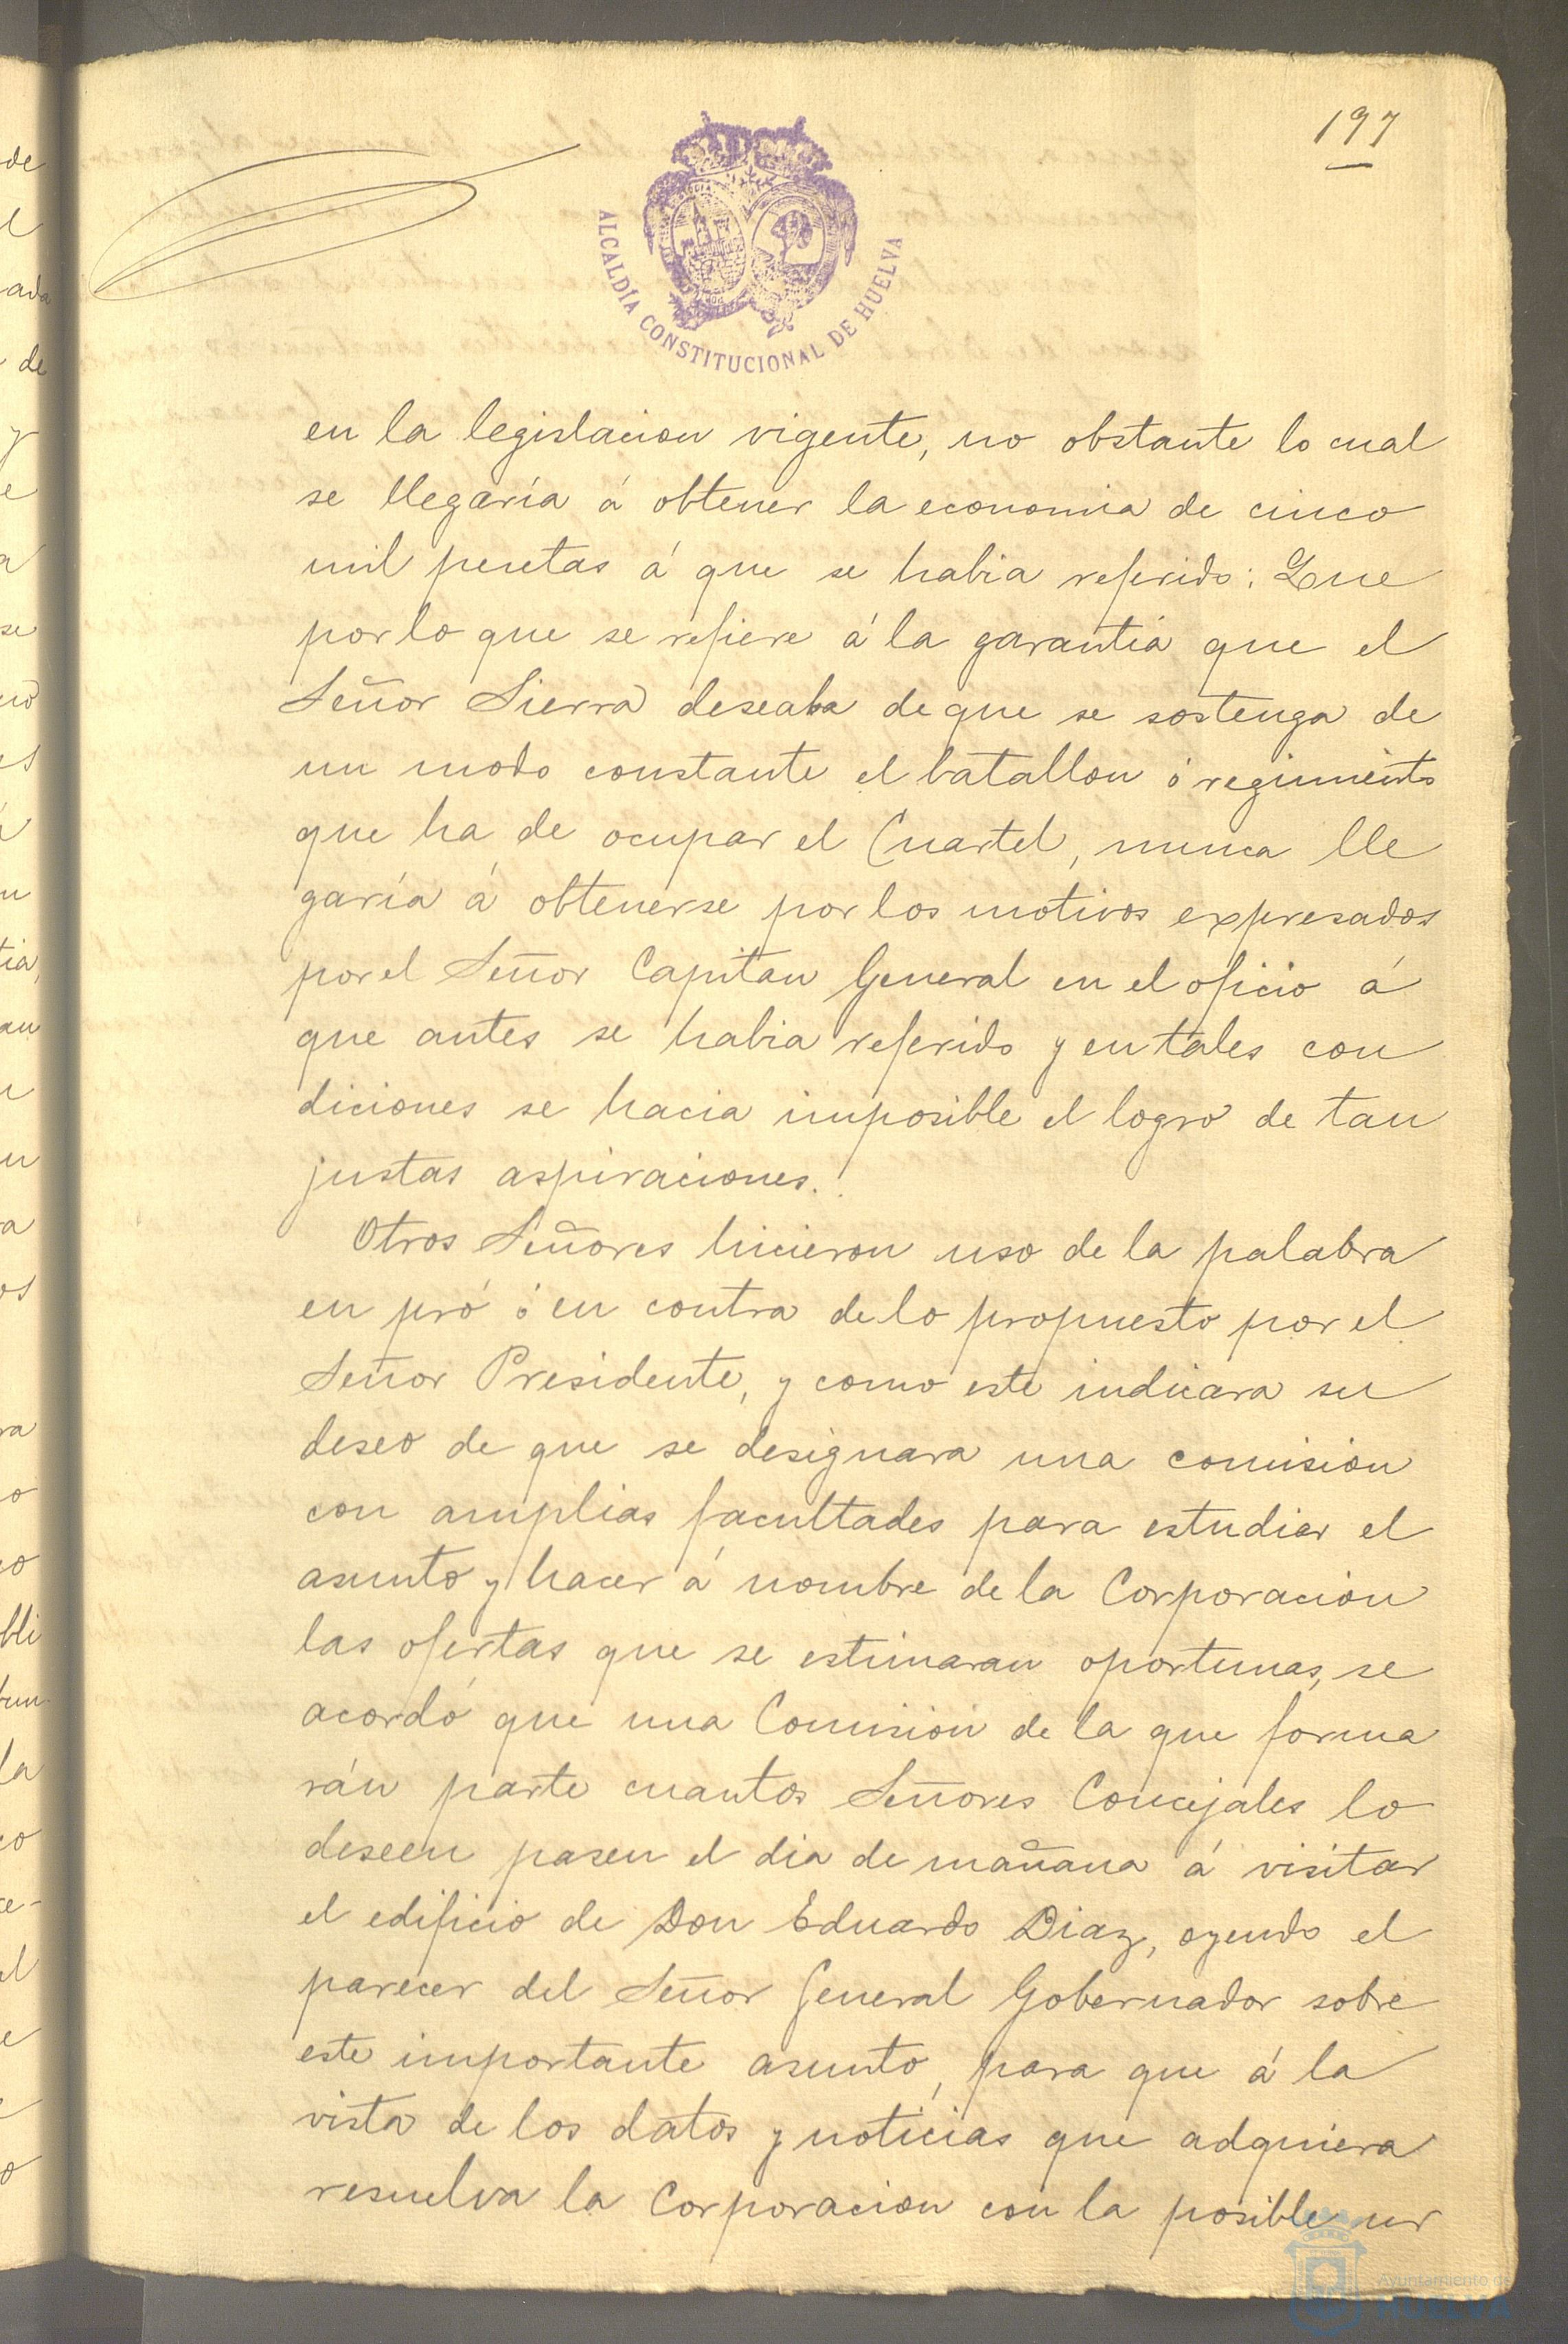 197
ALCALDÍA CONSTITUCIONAL DE HUELVA
en la legislacion vigente, no obstante lo cual
se llegaría á obtener la economia de cinco
mil pesetas á que se habia referido: Que
por lo que se refiere á la garantía que el
Señor Sierra deseaba de que se sostenga de
un modo constante el batallon ó regimiento
que ha de ocupar el Cuartel, nunca lle
garía á obtenerse por los motivos expresados
por el Señor Capitan General en el oficio á
que antes se habia referido y en tales con
diciones se hacia imposible el logro de tan
justas aspiraciones.
Otros Señores hicieron uso de la palabra
en pró ó en contra de lo propuesto por el
Señor Presidente, y como este indicara su
deseo de que se designara una comision
con amplias facultades para estudiar el
asunto y hacer á nombre de la Corporacion
las ofertas que se estimaran oportunas, se
acordó que una Comision de la que forma
rán parte cuantos Señores Concejales lo
deseen pasen el dia de mañana á visitar
el edificio de Don Eduardo Diaz, oyendo el
parecer del Señor General Gobernador sobre
este importante asunto, para que á la
vista de los datos y noticias que adquiera
resuelva la Corporacion con la posible ur
Ayuntamiento de
HUELVA